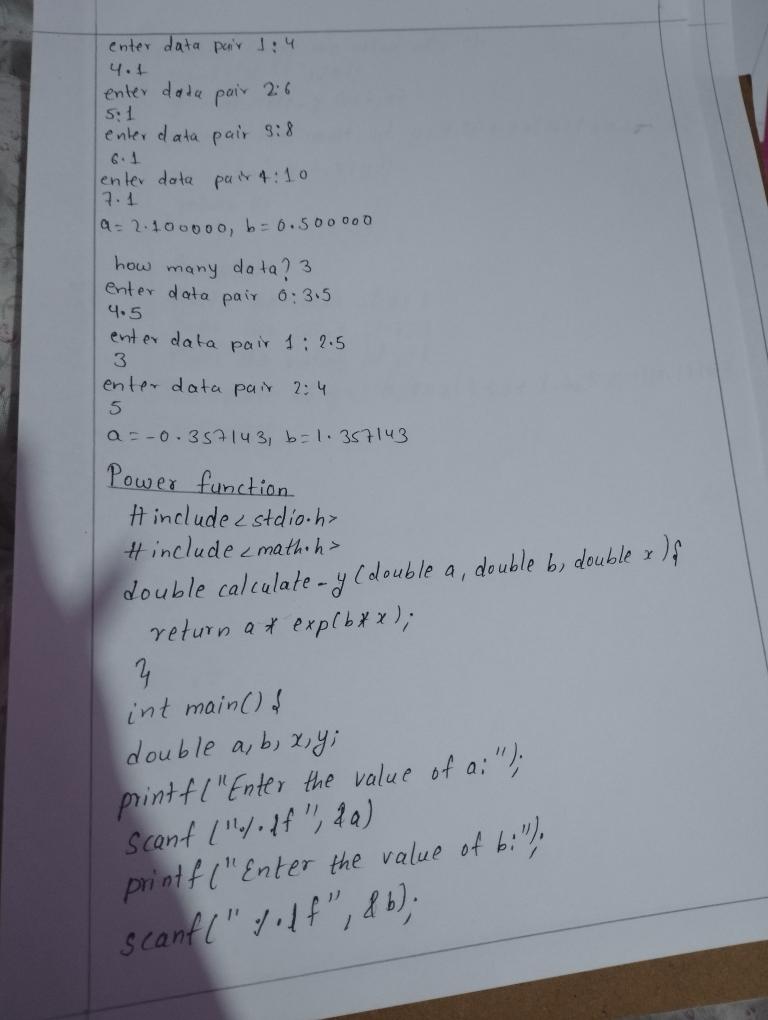 enter data pair 1:4
4.1
enter data pair 2:6
5:1
enter data pair 3:8
6.1
enter data pair 4:10
7.1
a= 2.100000, b= 0.500000
how many data? 3
enter data pair 0: 3.5
4.5
enter data pair 1: 2.5
3
enter data pair 2: 4
5
a = -0.357143, b=1.357143
Power function
#include<stdio.h>
#include<math.h>
double calculate-y (double a, double b, double x){
return a * exp(b*x);
}
int main() {
double a, b, x, y;
printf("Enter the value of a:");
scanf ("%lf", &a)
printf("Enter the value of b:");
scanf("%lf", &b);